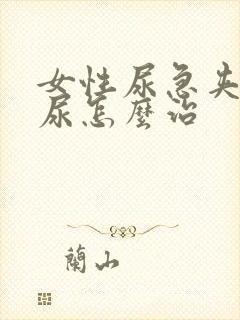 女性尿急失
尿怎麼治
蘭山